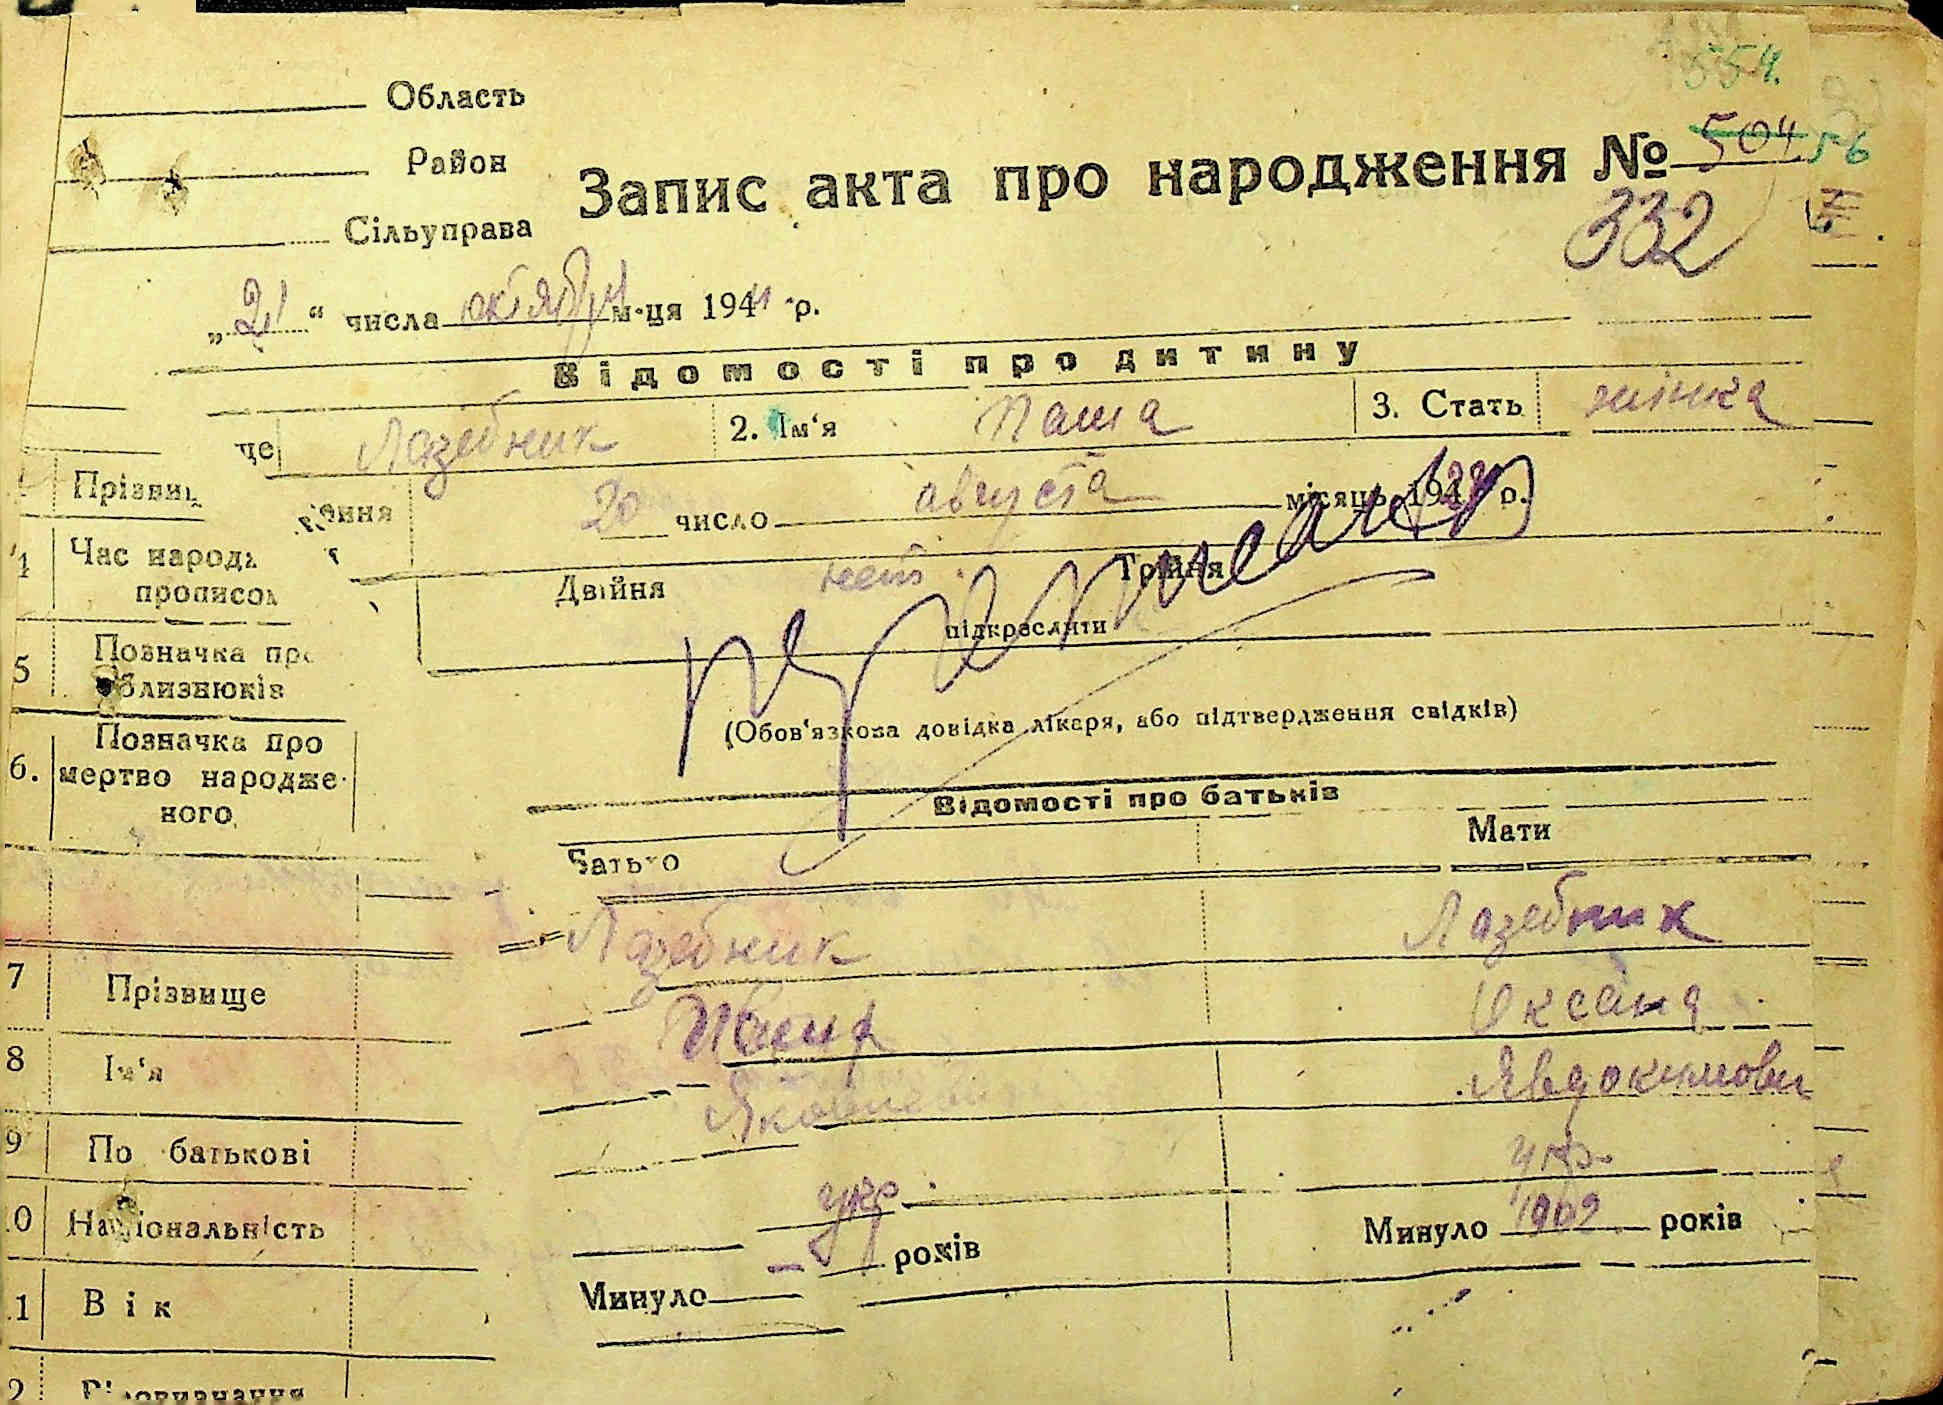 554.
Область
504 56
Район
Запис акта про народження №
Сільуправа
332
„21“ числа октября м-ця 1941 р.
Відомості про дитину
це Лазебник 2. Ім'я Паша 3. Стать жінка
Прізвищ
ження 20 число августа місяць 194 р.
4 Час народж
прописом
Двійня нет. Трійня
підкреслити
5 Позначка про
близнюків
(Обов'язкова довідка лікаря, або підтвердження свідків)
6. Позначка про
мертво народже-
ного.
Відомості про батьків
Батько Мати
7 Прізвище Лазебник Лазебник
8 Ім'я Оксана
9 По батькові Яковлевич Явдокимовн
10 Національність укр. укр.
11 Вік Минуло — років Минуло 1909 років